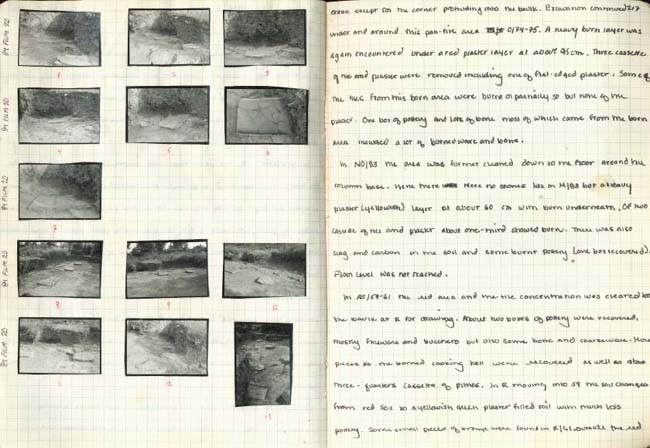 BY FILM 20
1
2
3
BY FILM 20
4
5
6
BY FILM 20
7
BY FILM 20
8
9
BY FILM 20
12
13
entire except for the corner protruding into the baulk. Excavation continued 217
under and around this pan-tile area O/74-75. A heavy burn layer was
again encountered under a red plaster layer at about 95 cm. Three cassette
of tile and plaster were removed including one of flat-edged plaster. Some of
the tiles from this born area were burnt or partially so but none of the
plaster. One box of pottery and lots of bone most of which came from the born
area included a lot of burned ware and bone.
In NO/83 the area was further cleaned down to the floor around the
column base. Here there were no stones like in M/83 but a heavy
plaster (yellowish) layer at about 60 cm with born underneath. Of two
cassette of tile and plaster about one-third showed born. There was also
slag and carbon in the soil and some burnt pottery (one box recovered).
Floor level was not reached.
In RS/59-61 the red area and the tile concentration was cleared to
the baulk at R for drawing. About two boxes of pottery were recovered,
mostly fineware and bucchero but also some bone and coarseware. More
pieces to the burned cooking bell were recovered as well as about
three-quarters cassetta of pithos. In R moving into 59 the soil changed
from red soil to a yellowish green plaster filled soil with much less
pottery. Some small pieces of bronze were found in R/61 outside the red